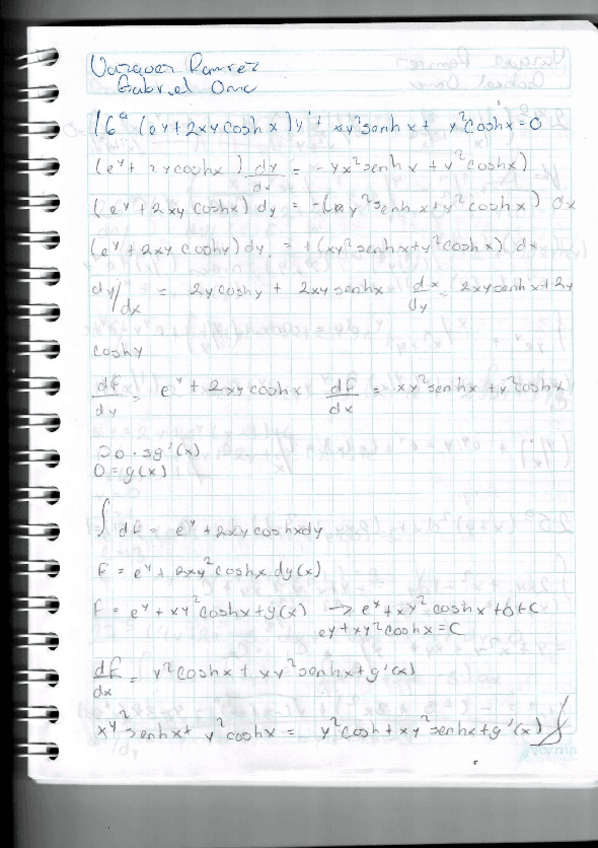 Vazquez Ramirez
Gabriel Omar
16ª (e^y + 2xy cosh x) y' + xy² senh x + y² cosh x = 0
(e^y + 2y cosh x) dy/dx = -yx² senh x + y² cosh x)
(e^y + 2xy cosh x) dy = -(xy² senh x + y² cosh x) dx
(e^y + 2xy cosh y) dy = +(xy² senh x + y² cosh x) dx
dy/dx = 2y cosh y + 2xy senh x dx/dy = 2xy senh x + 2y
cosh y
df/dy = e^y + 2xy cosh x df/dx = xy² senh x + y² cosh x
g'(x)
0 = g(x)
∫ df = e^y + 2xy cosh x dy
F = e^y + 2xy² cosh x dy(x)
F = e^y + xy² cosh x + g(x) → e^x + xy² cosh x + 0 + C
e^y + xy² cosh x = C
df/dx = y² cosh x + xy² senh x + g'(x)
xy² senh x + y² cosh x = y² cosh + xy² senh x + g'(x)